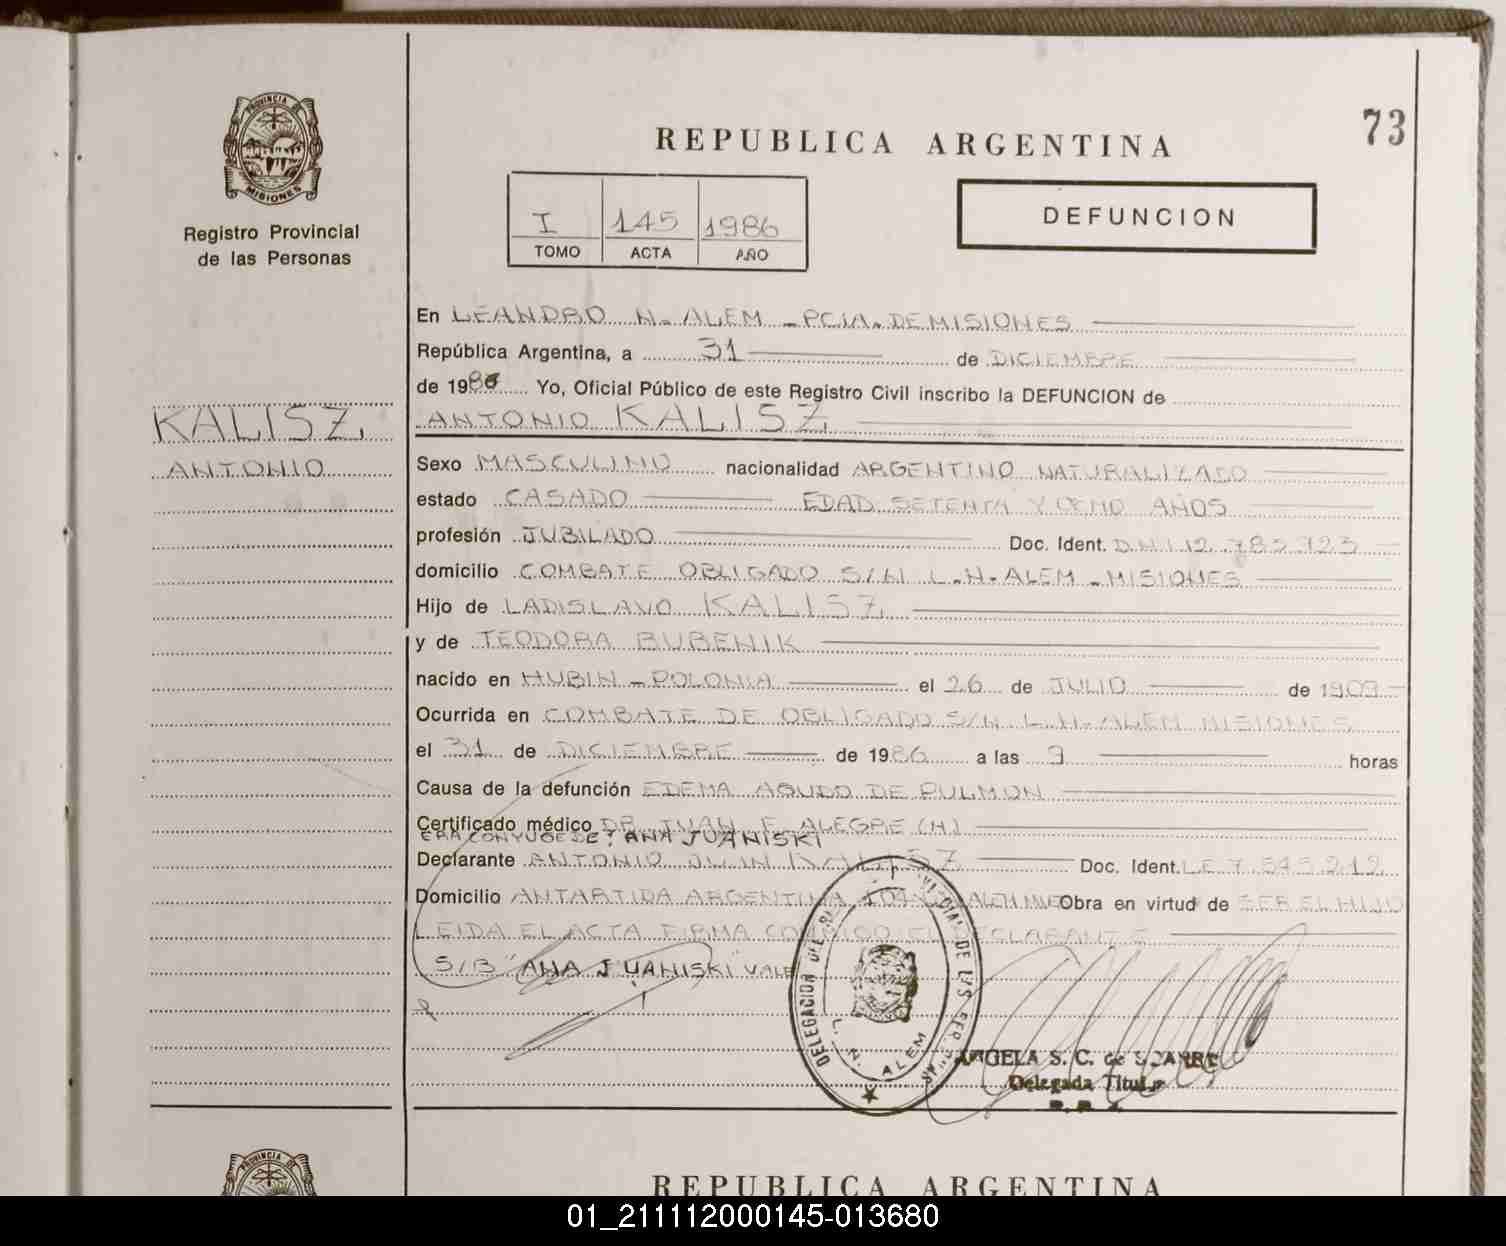 PROVINCIA DE
MISIONES
Registro Provincial
de las Personas
KALISZ,
ANTONIO
73
REPUBLICA ARGENTINA
I 145 1986
TOMO ACTA AÑO
DEFUNCION
En LEANDRO N. ALEM - PCIA. DE MISIONES
República Argentina, a 31 de DICIEMBRE
de 1986 Yo, Oficial Público de este Registro Civil inscribo la DEFUNCION de
ANTONIO KALISZ
Sexo MASCULINO nacionalidad ARGENTINO NATURALIZADO
estado CASADO EDAD SETENTA Y OCHO AÑOS
profesión JUBILADO Doc. Ident. D.N.I. 12.785.723
domicilio COMBATE OBLIGADO S/N L.N. ALEM - MISIONES
Hijo de LADISLAVO KALISZ
y de TEODORA BUBENIK
nacido en HUBIN - POLONIA el 26 de JULIO de
Ocurrida en COMBATE DE OBLIGADO S/N L.N. ALEM MISIONES
el 31 de DICIEMBRE de 1986 a las 9 horas
Causa de la defunción EDEMA AGUDO DE PULMON
Certificado médico DR. IVAN F. ALEGRE (H)
ERA CONYUGE DE: ANA JUANISKI
Declarante ANTONIO JUAN KALISZ Doc. Ident. L.E. 7.545.212
Domicilio ANTARTIDA ARGENTINA Obra en virtud de SER EL HIJO
LEIDA EL ACTA FIRMA CONMIGO EL DECLARANTE
S/B "ANA JUANISKI" VALE
DELEGACION DE LAS
L. N. ALEM
ANGELA S. C. de
Delegada Titular
REPUBLICA ARGENTINA
PROVINCIA DE
01_211112000145-013680